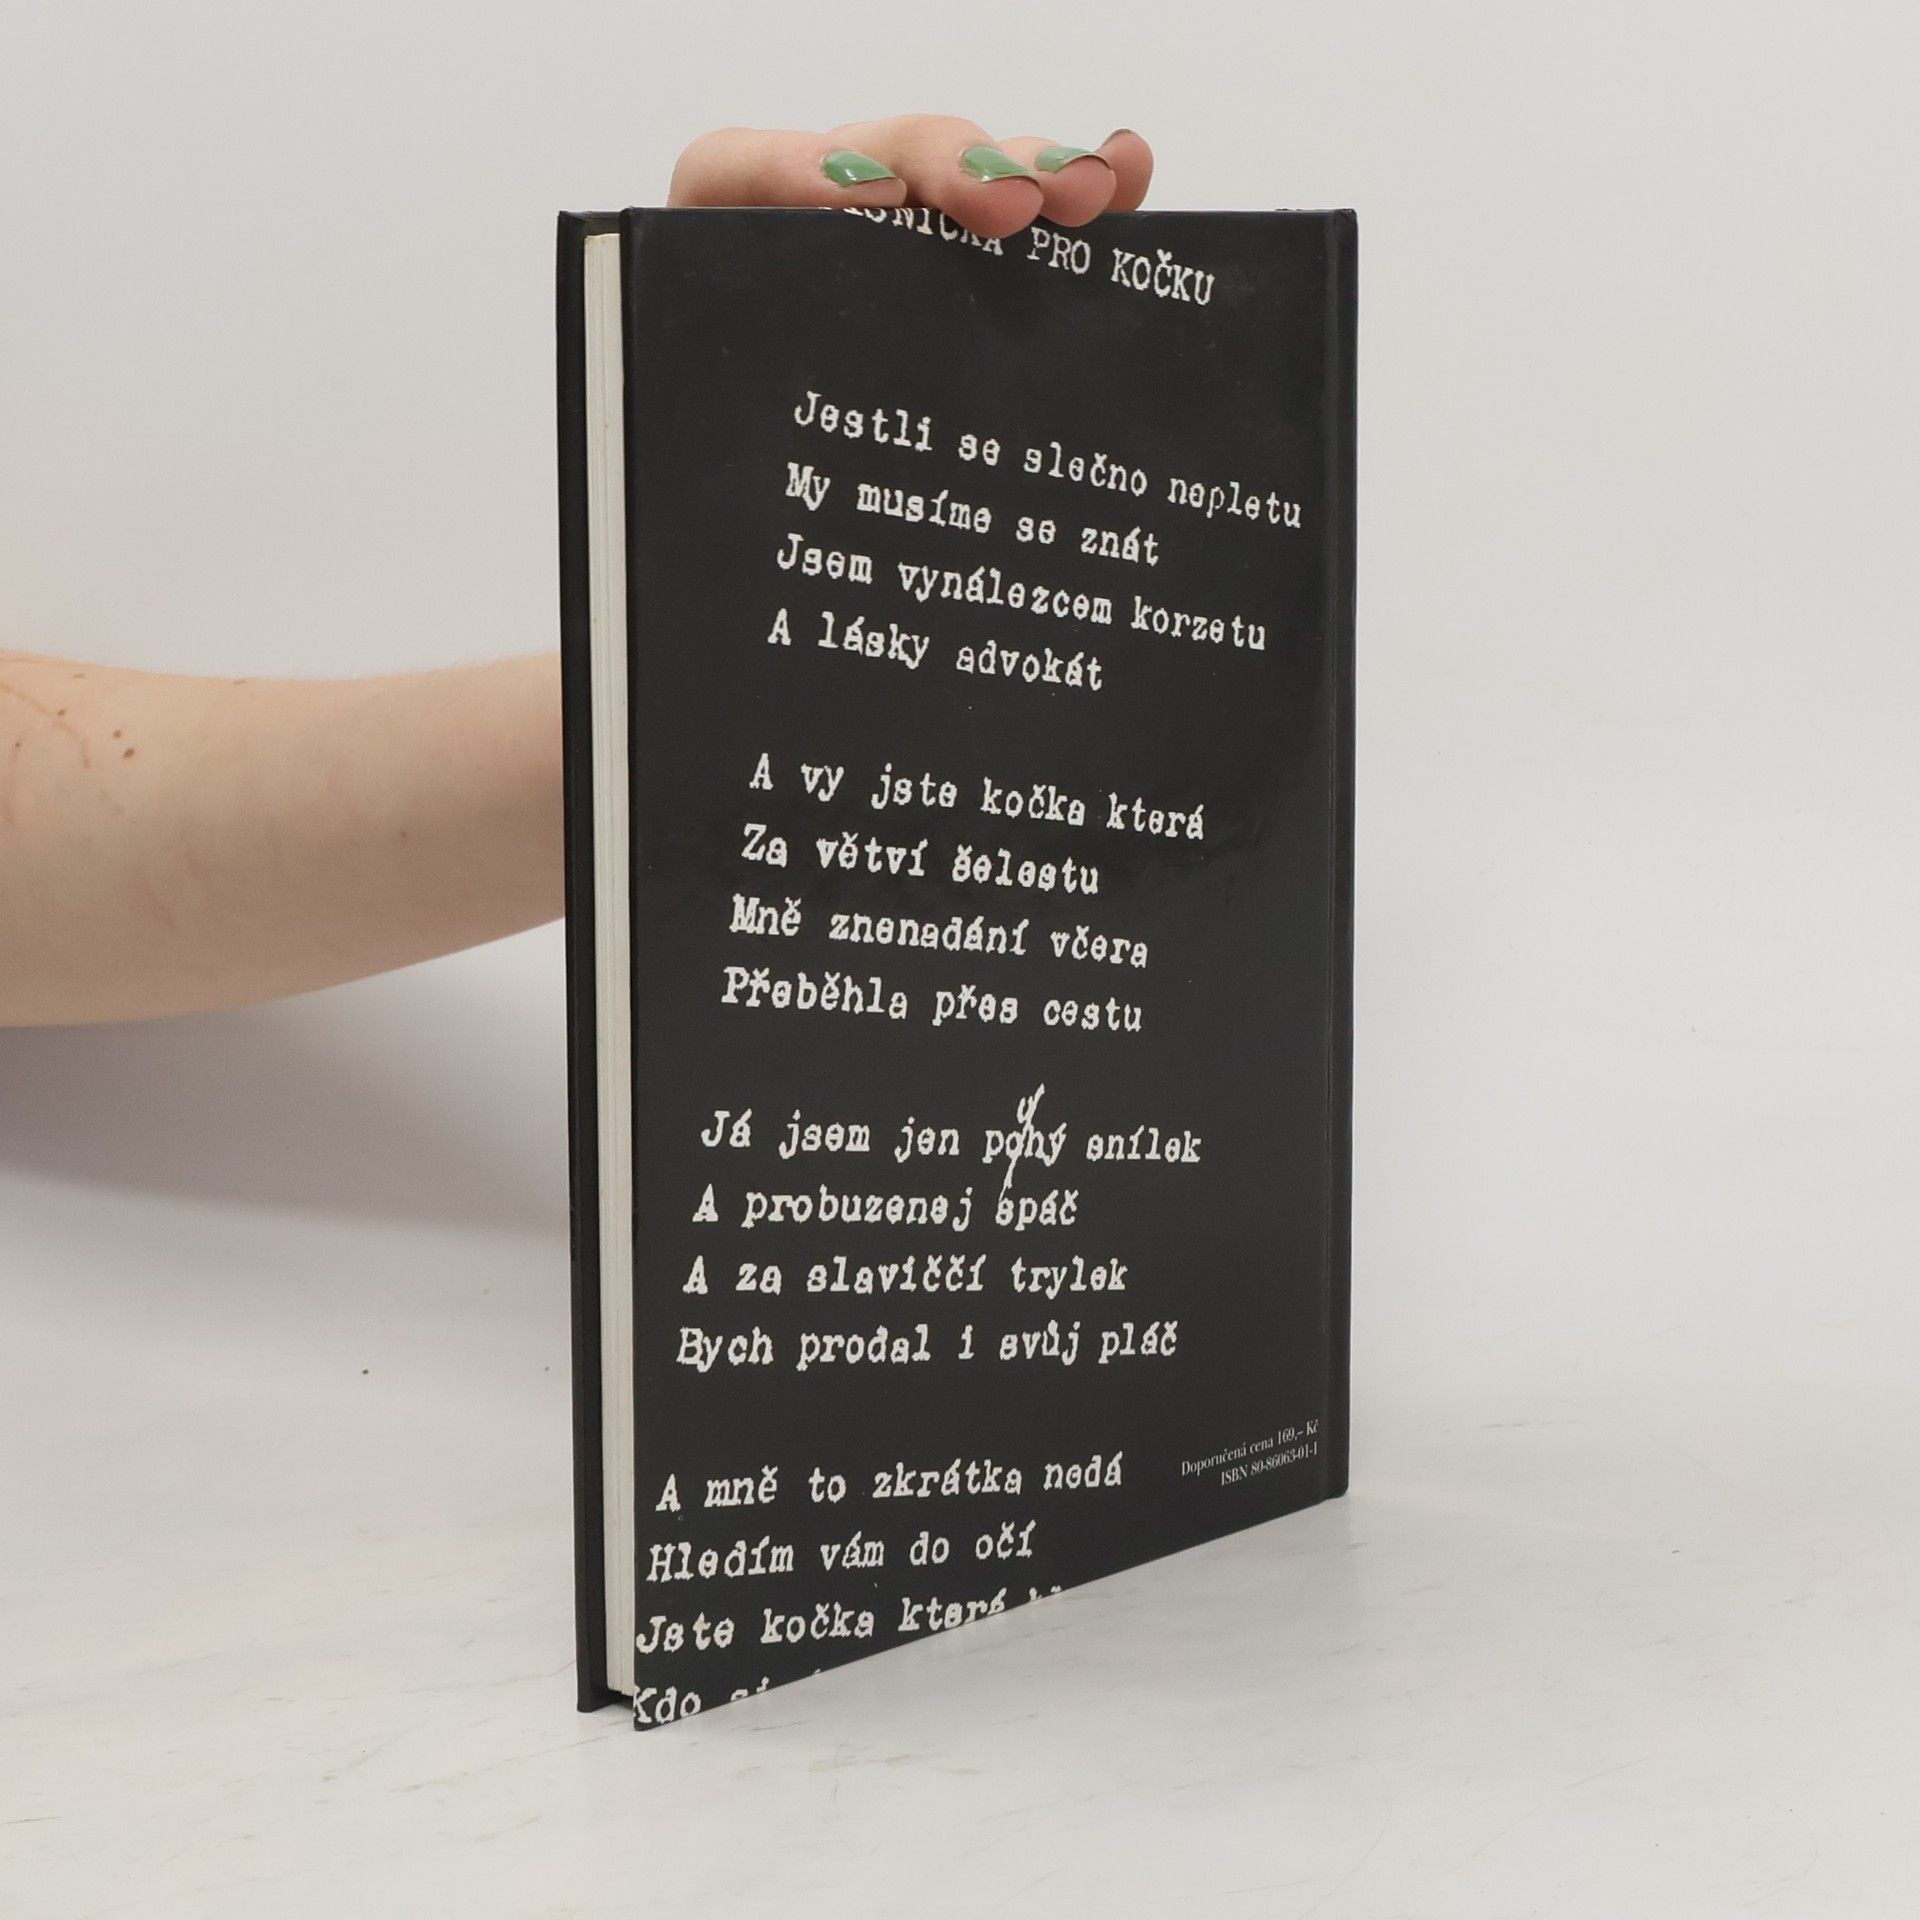 PRO KOČKU
Jestli se slečno nepletu
My musíme se znát
Jsem vynálezcem korzetu
A lásky advokát
A vy jste kočka která
Za větví šelestu
Mně znenadání včera
Přeběhla přes cestu
Já jsem jen pohý snílek
A probuzenej spáč
A za slaviččí trylek
Bych prodal i svůj pláč
A mně to zkrátka nedá
Hledím vám do očí
Jste kočka která
Kdo
Doporučená cena 169,– Kč
ISBN 80-86063-01-1